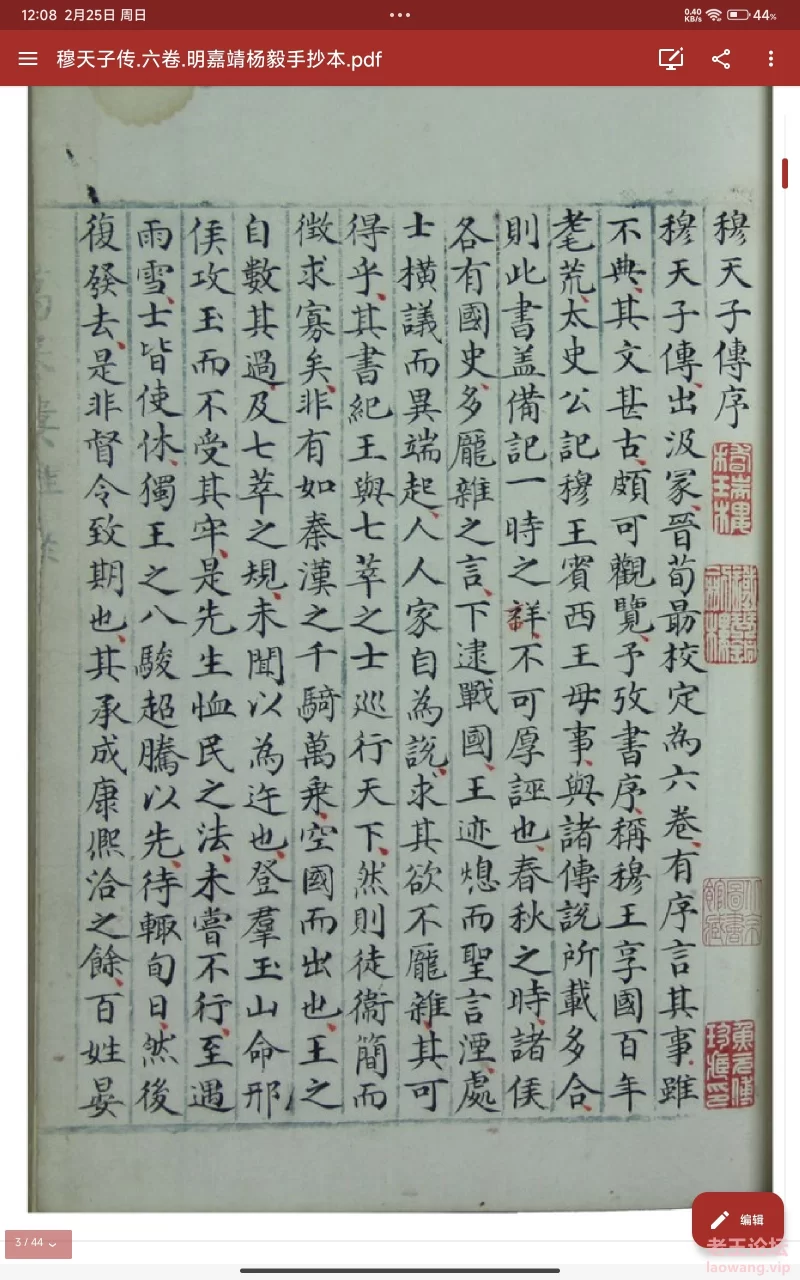 12:08 2月25日 周日
0.40 KB/s 44%
穆天子传.六卷.明嘉靖杨毅手抄本.pdf
穆天子傳序
穆天子傳、出汲冢、晉荀最校定為六卷、有序言其事、雖
不典、其文甚古、頗可觀覽、予攷書序、稱穆王享國百年
耄荒、太史公記穆王賓西王母事、與諸傳說所載多合、
則此書盖備記一時之祥、不可厚誣也、春秋之時、諸侯
各有國史、多龎雜之言、下逮戰國、王迹熄而聖言湮、處
士橫議而異端起、人人家自為說、求其欲不龎雜、其可
得乎、其書紀王與七萃之士巡行天下、然則徒衞簡而
徵求寡矣、非有如秦漢之千騎萬乗、空國而出也、王之
自數其過、及七萃之規、未聞以為迕也、登羣玉山命邢
侯攻玉而不受其牢、是先生恤民之法、未嘗不行、至遇
雨雪、士皆使休、獨王之八駿超騰以先、待輙旬日、然後
復發去、是非督令致期也、其承成康熈洽之餘、百姓晏
编辑
3 / 44
老王论坛
laowang.vip